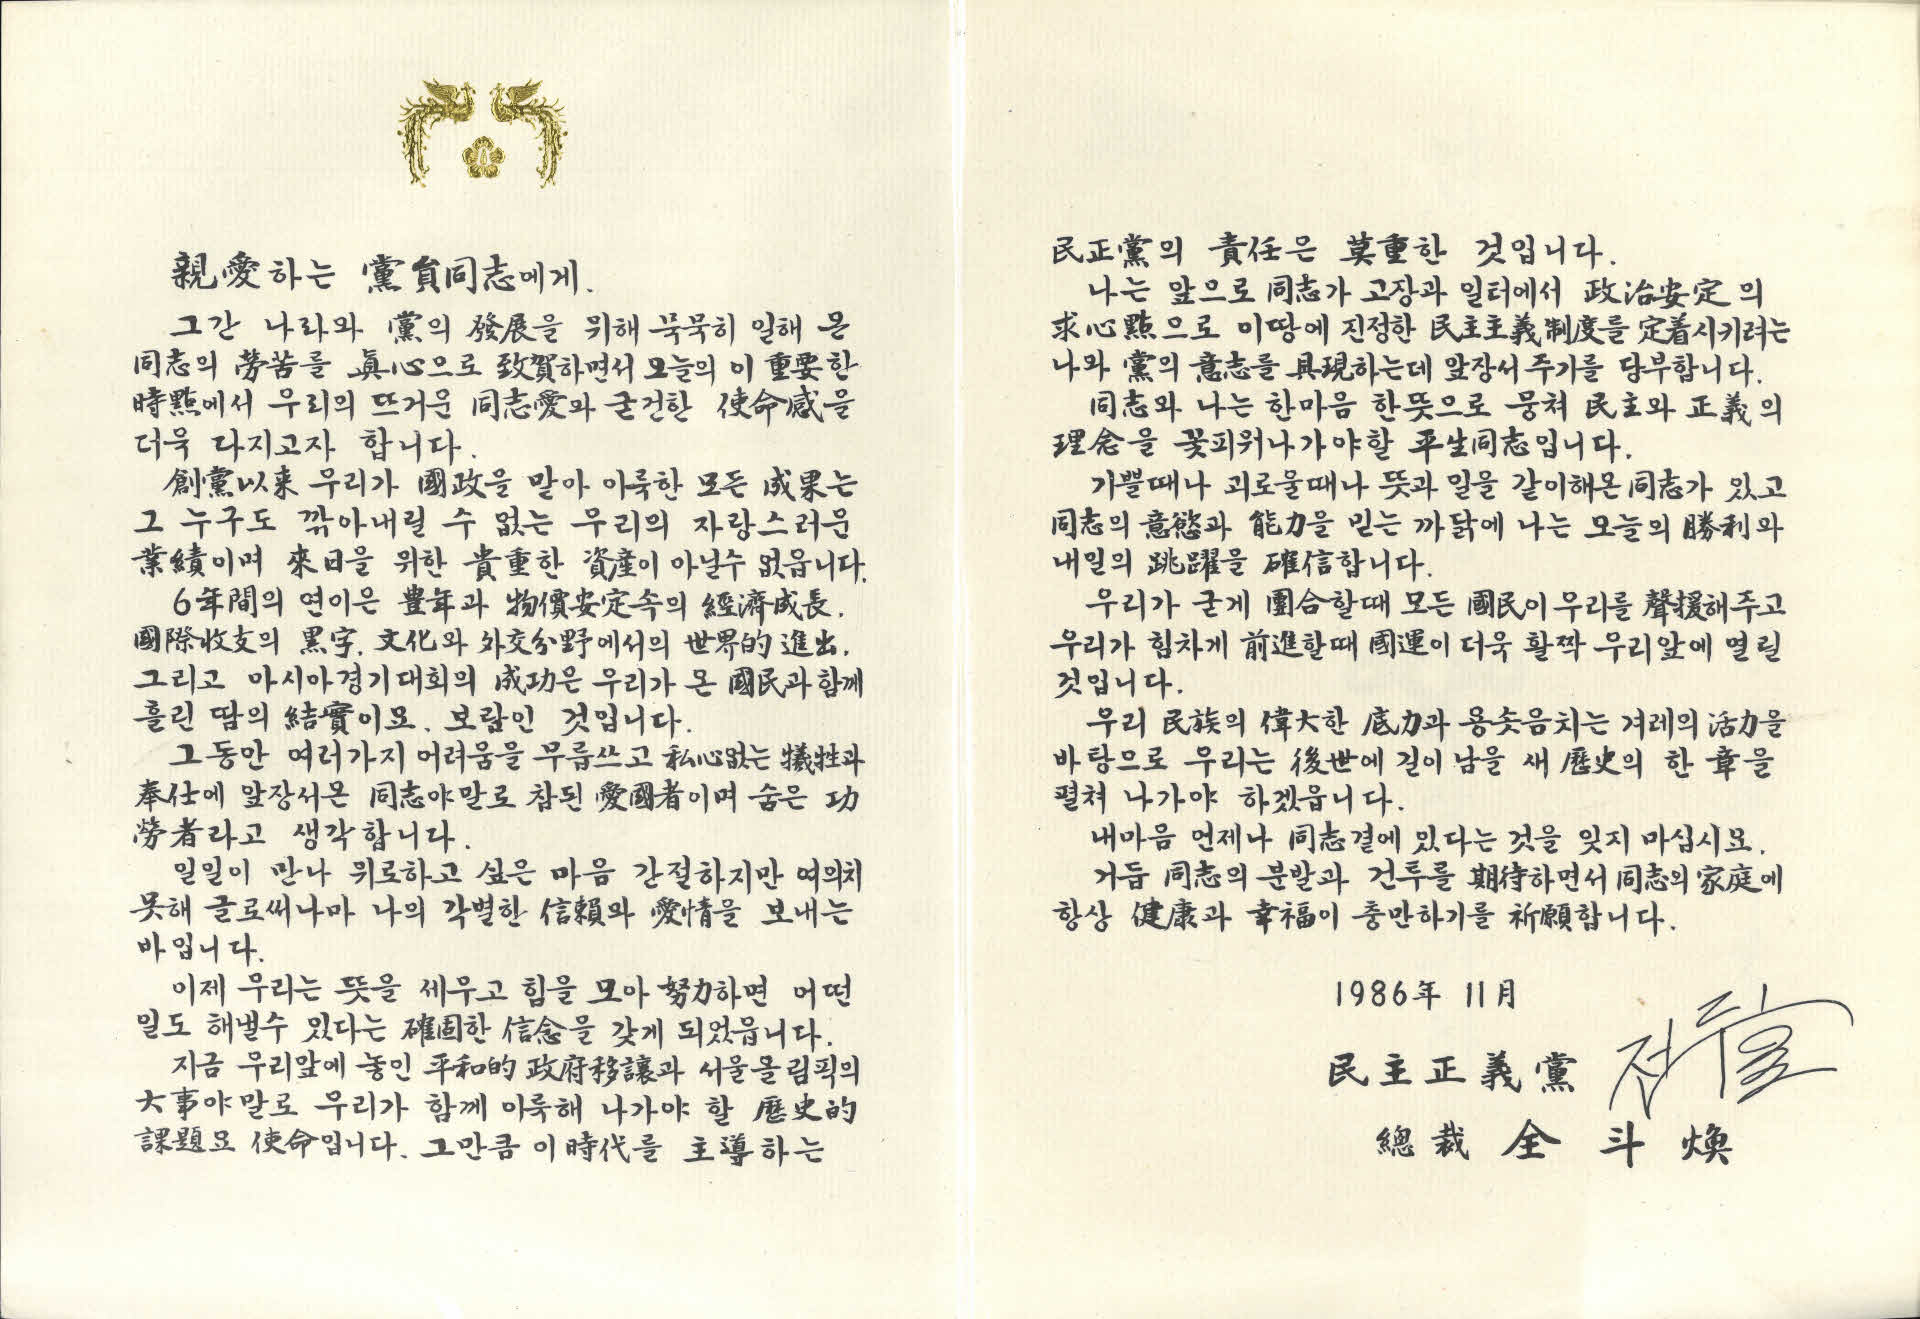 親愛하는 黨員同志에게.
그간 나라와 黨의 發展을 위해 묵묵히 일해 온
同志의 勞苦를 眞心으로 致賀하면서 오늘의 이 重要한
時點에서 우리의 뜨거운 同志愛와 굳건한 使命感을
더욱 다지고자 합니다.
創黨以来 우리가 國政을 맡아 이룩한 모든 成果는
그 누구도 깎아내릴 수 없는 우리의 자랑스러운
業績이며 來日을 위한 貴重한 資産이 아닐수 없읍니다.
6年間의 연이은 豊年과 物價安定속의 經濟成長,
國際收支의 黒字, 文化와 外交分野에서의 世界的 進出,
그리고 아시아경기대회의 成功은 우리가 온 國民과 함께
흘린 땀의 結實이요, 보람인 것입니다.
그동안 여러가지 어려움을 무릅쓰고 私心없는 犧牲과
奉仕에 앞장서온 同志야말로 참된 愛國者이며 숨은 功
勞者라고 생각합니다.
일일이 만나 위로하고 싶은 마음 간절하지만 여의치
못해 글로써나마 나의 각별한 信賴와 愛情을 보내는
바입니다.
이제 우리는 뜻을 세우고 힘을 모아 努力하면 어떤
일도 해낼수 있다는 確固한 信念을 갖게 되었읍니다.
지금 우리앞에 놓인 平和的 政府移讓과 서울올림픽의
大事야말로 우리가 함께 이룩해 나가야 할 歷史的
課題요 使命입니다. 그만큼 이 時代를 主導하는
民正黨의 責任은 莫重한 것입니다.
나는 앞으로 同志가 고장과 일터에서 政治安定의
求心點으로 이땅에 진정한 民主主義制度를 定着시키려는
나와 黨의 意志를 具現하는데 앞장서 주기를 당부합니다.
同志와 나는 한마음 한뜻으로 뭉쳐 民主와 正義의
理念을 꽃피워나가야할 平生同志입니다.
기쁠때나 괴로울때나 뜻과 일을 같이해온 同志가 있고
同志의 意慾과 能力을 믿는 까닭에 나는 오늘의 勝利와
내일의 跳躍을 確信합니다.
우리가 굳게 團合할때 모든 國民이 우리를 聲援해주고
우리가 힘차게 前進할때 國運이 더욱 활짝 우리앞에 열릴
것입니다.
우리 民族의 偉大한 底力과 용솟음치는 겨레의 活力을
바탕으로 우리는 後世에 길이 남을 새 歷史의 한 章을
펼쳐 나가야 하겠읍니다.
내마음 언제나 同志곁에 있다는 것을 잊지 마십시요.
거듭 同志의 분발과 건투를 期待하면서 同志의 家庭에
항상 健康과 幸福이 충만하기를 祈願합니다.
1986年 11月
民主正義黨 전두환
總裁 全斗煥